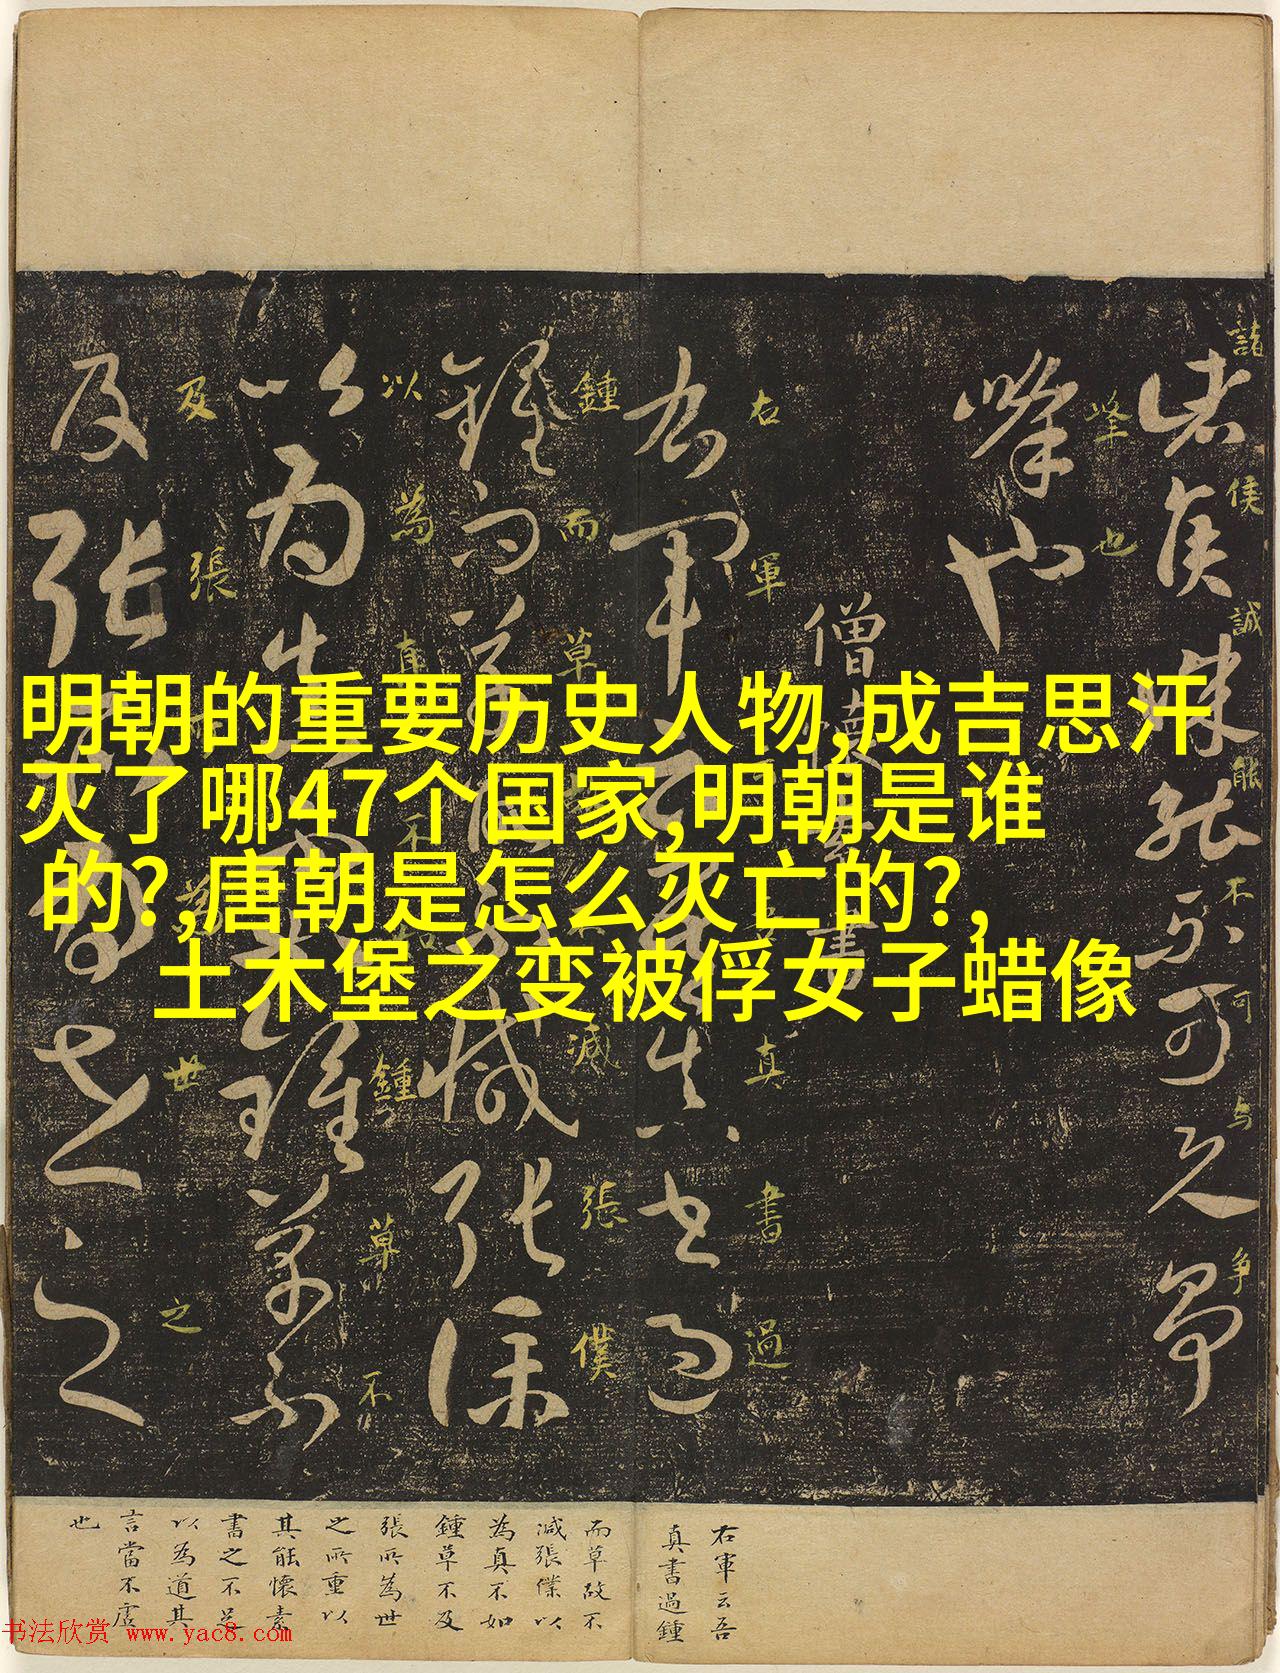 明朝的重要历史人物,成吉思汗
灭了哪47个国家,明朝是谁
的?,唐朝是怎么灭亡的?,
土木堡之变被俘女子蜡像
諸侯誠能不可与争
峰也
僧懷素書
右軍真書過
鍾而草减張僕
以為真不鍾草不
及張為世之
右軍云吾
真書過鍾
而草故不
減張僕以
為真不如
鍾草不及
張所為世
之所重以
其能懷素
書之不足
以為道其
言當不虛
也
书法欣赏 www.yac8.com